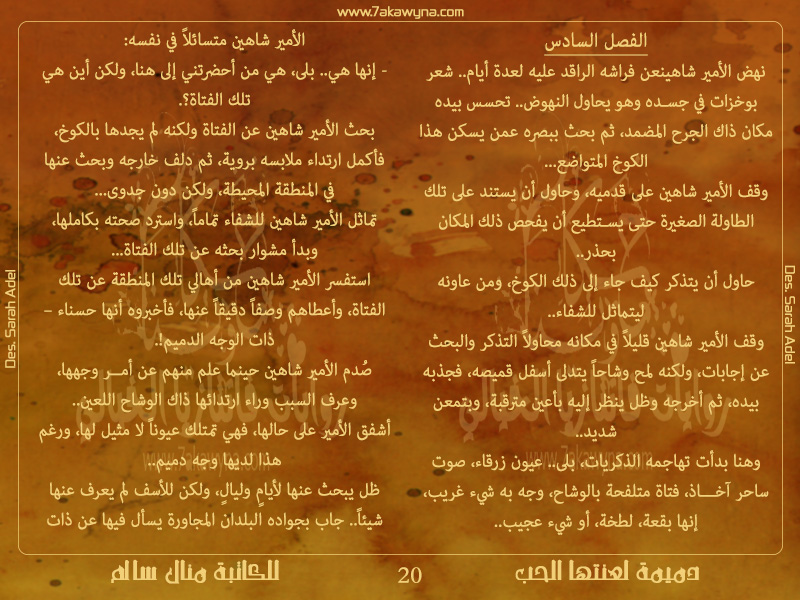 www.7akawyna.com
الفصل السادس
نهض الأمير شاهينعن فراشه الراقد عليه لعدة أيام.. شعر
بوخزات في جسده وهو يحاول النهوض.. تحسس بيده
مكان ذاك الجرح المضمد، ثم بحث ببصره عمن يسكن هذا
الكوخ المتواضع...
وقف الأمير شاهين على قدميه، وحاول أن يستند على تلك
الطاولة الصغيرة حتى يستطيع أن يفحص ذلك المكان
بحذر..
حاول أن يتذكر كيف جاء إلى ذلك الكوخ، ومن عاونه
ليتماثل للشفاء..
وقف الأمير شاهين قليلاً في مكانه محاولاً التذكر والبحث
عن إجابات، ولكنه لمح وشاحاً يتدلى أسفل قميصه، فجذبه
بيده، ثم أخرجه وظل ينظر إليه بأعين مترقبة، وبتمعن
شديد..
وهنا بدأت تهاجمه الذكريات، بلى.. عيون زرقاء، صوت
ساحر آخـــاذ، فتاة متلفحة بالوشاح، وجه به شيء غريب،
إنها بقعة، لطخة، أو شيء عجيب..
الأمير شاهين متسائلاً في نفسه:
- إنها هي.. بلى، هي من أحضرتني إلى هنا، ولكن أين هي
تلك الفتاة؟.
بحث الأمير شاهين عن الفتاة ولكنه لم يجدها بالكوخ،
فأكمل ارتداء ملابسه بروية، ثم دلف خارجه وبحث عنها
في المنطقة المحيطة، ولكن دون جدوى...
تماثل الأمير شاهين للشفاء تماماً، واسترد صحته بكاملها،
وبدأ مشوار بحثه عن تلك الفتاة...
استفسر الأمير شاهين من أهالي تلك المنطقة عن تلك
الفتاة، وأعطاهم وصفاً دقيقاً عنها، فأخبروه أنها حسناء –
ذات الوجه الدميم!.
صُدم الأمير شاهين حينما علم منهم عن أمـــر وجهها،
وعرف السبب وراء ارتدائها ذاك الوشاح اللعين..
أشفق الأمير على حالها، فهي تمتلك عيوناً لا مثيل لها، ورغم
هذا لديها وجه دميم..
ظل يبحث عنها لأيامٍ وليالٍ، ولكن للأسف لم يعرف عنها
شيئاً.. جاب بجواده البلدان المجاورة يسأل فيها عن ذات
Des. Sarah Adel
Des. Sarah Adel
دميمة لعنتها الحب
20
للكاتبة منال سالم
www.7akawyna.com
www.7akawyna.com